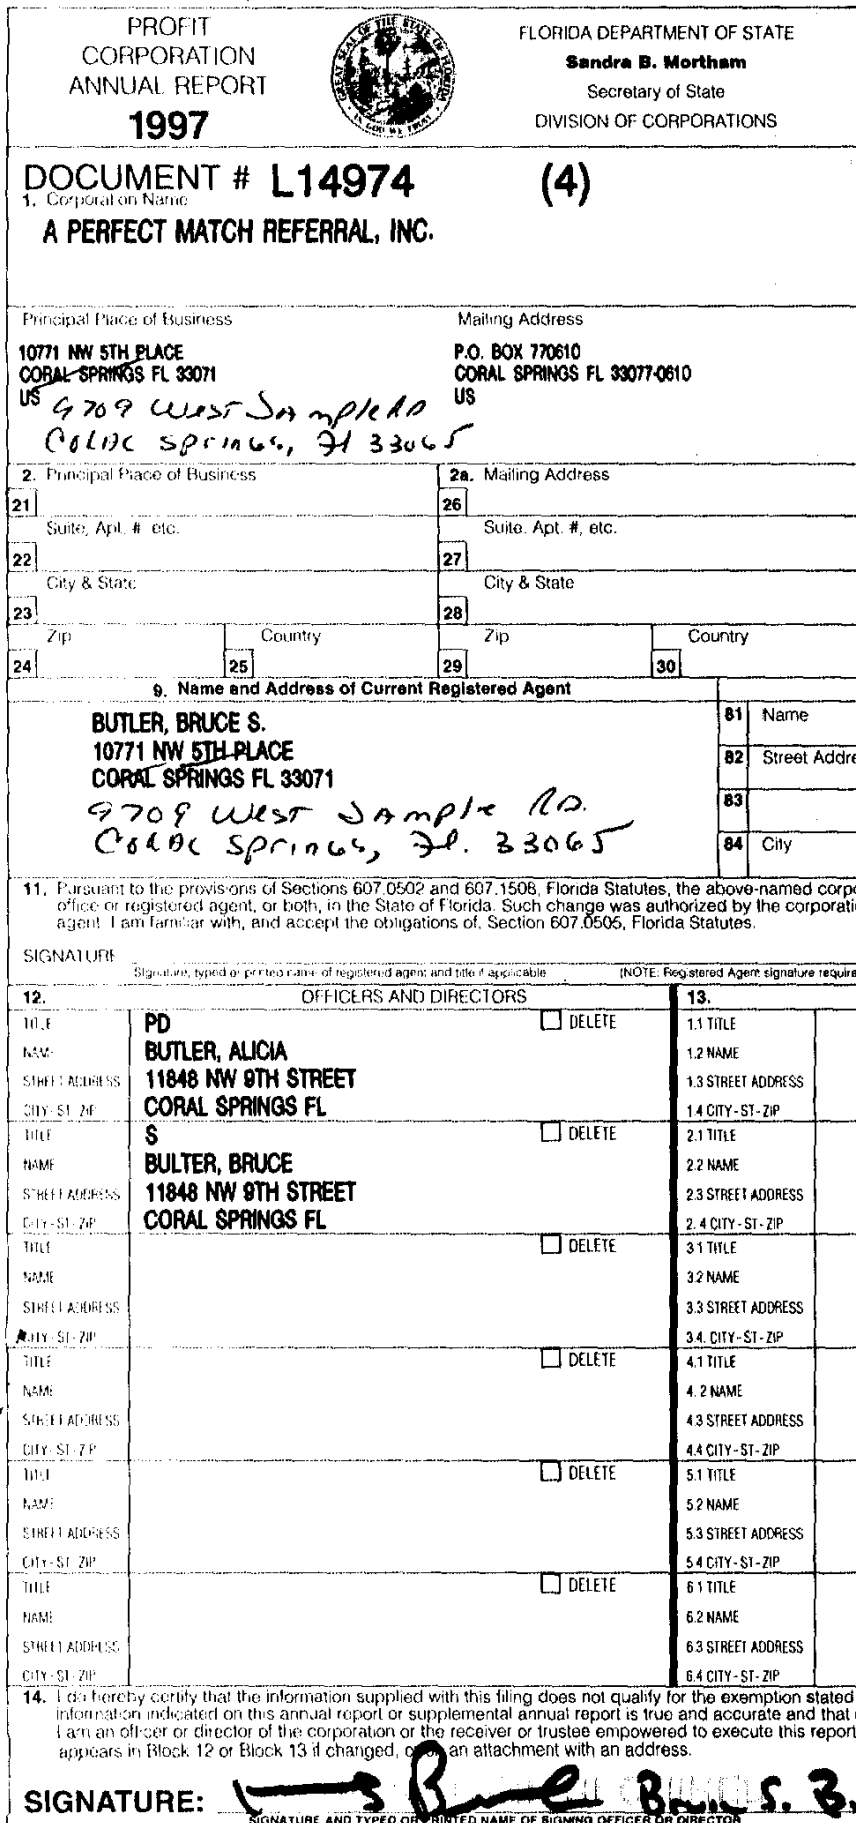 PROFIT
CORPORATION
ANNUAL REPORT
1997
FLORIDA DEPARTMENT OF STATE
Sandra B. Mortham
Secretary of State
DIVISION OF CORPORATIONS
DOCUMENT # L14974 (4)
1. Corporation Name
A PERFECT MATCH REFERRAL, INC.
Principal Place of Business
10771 NW 5TH PLACE
CORAL SPRINGS FL 33071
US
9709 West Sample RD
Coral Springs, Fl 33065
Mailing Address
P.O. BOX 770610
CORAL SPRINGS FL 33077-0610
US
2. Principal Place of Business
2a. Mailing Address
21
26
Suite, Apt. # etc.
Suite. Apt. #, etc.
22
27
City & State
City & State
23
28
Zip
Country
Zip
Country
24
25
29
30
9. Name and Address of Current Registered Agent
BUTLER, BRUCE S.
10771 NW 5TH PLACE
CORAL SPRINGS FL 33071
9709 West Sample RD.
Coral Springs, Fl. 33065
81 Name
82 Street Addre
83
84 City
11. Pursuant to the provisions of Sections 607.0502 and 607.1508, Florida Statutes, the above-named corpo
office or registered agent, or both, in the State of Florida. Such change was authorized by the corporati
agent. I am familiar with, and accept the obligations of, Section 607.0505, Florida Statutes.
SIGNATURE
Signature, typed or printed name of registered agent and title if applicable
(NOTE: Registered Agent signature require
12. OFFICERS AND DIRECTORS 13.
TITLE PD DELETE 1.1 TITLE
NAME BUTLER, ALICIA 1.2 NAME
STREET ADDRESS 11848 NW 9TH STREET 1.3 STREET ADDRESS
CITY-ST-ZIP CORAL SPRINGS FL 1.4 CITY-ST-ZIP
TITLE S DELETE 2.1 TITLE
NAME BULTER, BRUCE 2.2 NAME
STREET ADDRESS 11848 NW 9TH STREET 2.3 STREET ADDRESS
CITY-ST-ZIP CORAL SPRINGS FL 2.4 CITY-ST-ZIP
TITLE DELETE 3.1 TITLE
NAME 3.2 NAME
STREET ADDRESS 3.3 STREET ADDRESS
CITY-ST-ZIP 3.4. CITY-ST-ZIP
TITLE DELETE 4.1 TITLE
NAME 4.2 NAME
STREET ADDRESS 4.3 STREET ADDRESS
CITY-ST-ZIP 4.4 CITY-ST-ZIP
TITLE DELETE 5.1 TITLE
NAME 5.2 NAME
STREET ADDRESS 5.3 STREET ADDRESS
CITY-ST-ZIP 5.4 CITY-ST-ZIP
TITLE DELETE 6.1 TITLE
NAME 6.2 NAME
STREET ADDRESS 6.3 STREET ADDRESS
CITY-ST-ZIP 6.4 CITY-ST-ZIP
14. I do hereby certify that the information supplied with this filing does not qualify for the exemption stated
information indicated on this annual report or supplemental annual report is true and accurate and that
I am an officer or director of the corporation or the receiver or trustee empowered to execute this report
appears in Block 12 or Block 13 if changed, or on an attachment with an address.
SIGNATURE:
SIGNATURE AND TYPED OR PRINTED NAME OF SIGNING OFFICER OR DIRECTOR